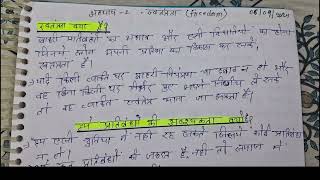 अध्याय-2 : स्वतंत्रता (freedom)
स्वतंत्रता क्या है?
बाहरी प्रतिबंधों का अभाव और ऐसी स्थितियों का होना
जिनमें लोग अपनी प्रतिभा का विकास कर सकें,
स्वतंत्रता है।
यदि किसी व्यक्ति पर बाहरी नियंत्रण या दबाव ना हो और
वह बिना किसी पर निर्भर हुए अपने निर्णय ले सके
तो वह व्यक्ति स्वतंत्र माना जा सकता है।
हमें प्रतिबंधों की आवश्यकता क्यों है?
हम ऐसी दुनिया में नहीं रह सकते जिसमें कोई प्रतिबंध
न हो।
प्रतिबंधों की जरूरत है, नहीं तो समाज में